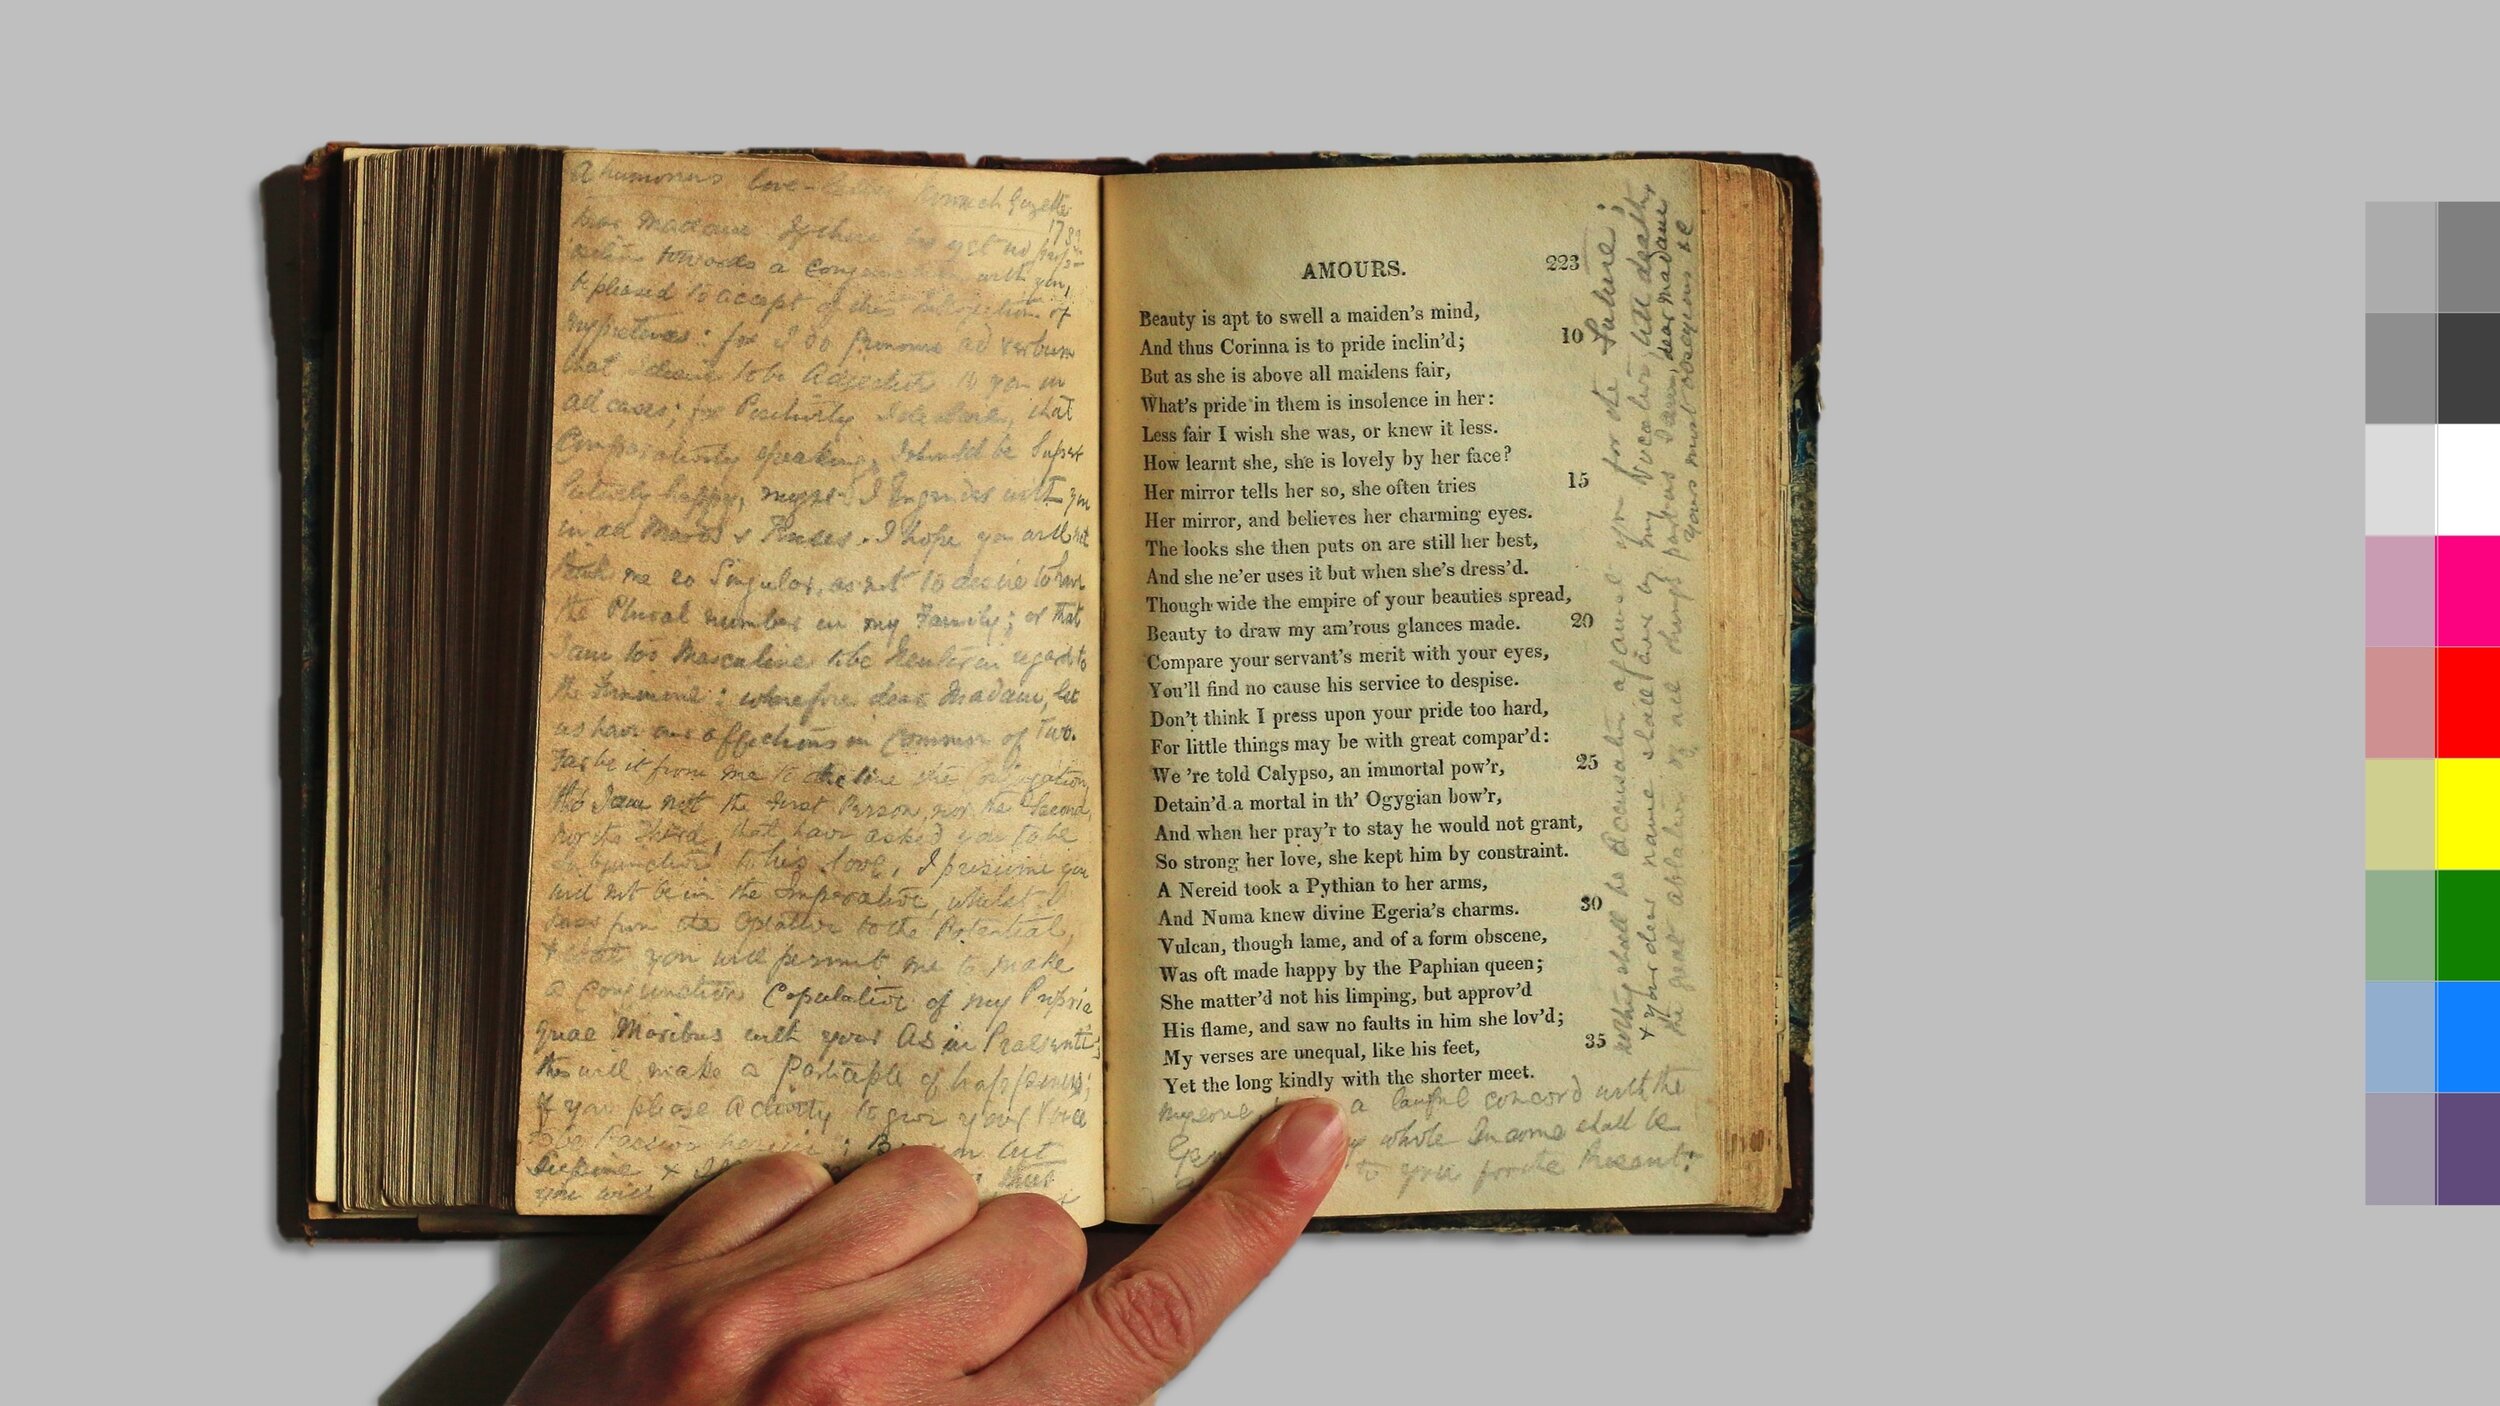 A humorous love-letter Norwich Gazette
1732
towards a with you,
be pleased to accept of this Interjection of
my pretences: for I do Pronoune ad verbum
that I desire to be Adjective to you in
all cases; for Positively I declare, that
Comparatively speaking, I should be Super
latively happy, might I Engender with you
in all Moods & Tenses. I hope you will not
think me so Singular, as not to desire to have
the Plural number in my Family; or that
I am too Masculine to be Neuter in regard to
the Feminine: wherefore dear Madam, let
us have our affections in Common of Two.
Far be it from me to decline the Conjugation,
tho I am not the First Person, nor the Second,
nor the Third, that have asked you to be
Subjunctive to his love, I presume you
will not be in the Imperative, whilst I
pass from the Optative to the Potential,
& that you will permit me to make
a Conjunction Copulative of my Propria
quae Maribus with your As in Praesenti;
this will make a Participle of happiness;
if you please Actively to give your Voice
to be Passive herein; B
Supine &
you will
AMOURS.
223
Beauty is apt to swell a maiden's mind,
And thus Corinna is to pride inclin'd;
10
But as she is above all maidens fair,
What's pride in them is insolence in her:
Less fair I wish she was, or knew it less.
How learnt she, she is lovely by her face?
Her mirror tells her so, she often tries
15
Her mirror, and believes her charming eyes.
The looks she then puts on are still her best,
And she ne'er uses it but when she's dress'd.
Though wide the empire of your beauties spread,
Beauty to draw my am'rous glances made.
20
Compare your servant's merit with your eyes,
You'll find no cause his service to despise.
Don't think I press upon your pride too hard,
For little things may be with great compar'd:
We 're told Calypso, an immortal pow'r,
25
Detain'd a mortal in th' Ogygian bow'r,
And when her pray'r to stay he would not grant,
So strong her love, she kept him by constraint.
A Nereid took a Pythian to her arms,
And Numa knew divine Egeria's charms.
30
Vulcan, though lame, and of a form obscene,
Was oft made happy by the Paphian queen;
She matter'd not his limping, but approv'd
His flame, and saw no faults in him she lov'd;
My verses are unequal, like his feet,
35
Yet the long kindly with the shorter meet.
a lawful concord with the
whole Income shall be
to you for the Present:
nothing shall be Accusative against you for the Future;
& your dear name shall ever be my Vocative, till death,
the great ablative of all things parts us I am, dear madame
yours most obsequious &c